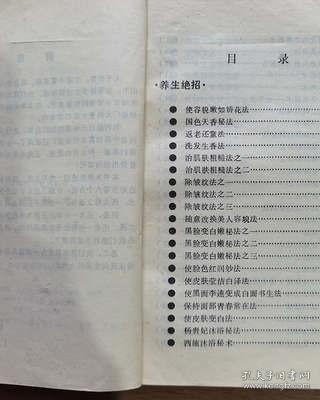 目 录
·养生绝招·
● 使容貌嫩如娇花法
● 国色天香秘法
● 返老还童法
● 洗发生香法
● 治肌肤粗糙法之一
● 治肌肤粗糙法之二
● 除皱纹法之一
● 除皱纹法之二
● 除皱纹法之三
● 随意改换美人容貌法
● 黑脸变白嫩秘法之一
● 黑脸变白嫩秘法之二
● 黑脸变白嫩秘法之三
● 使脸色红润妙法
● 使皮肤莹洁白泽法
● 使黑面李逵变成白面书生法
● 保持面部青春常在法
● 使皮肤变白法
● 杨贵妃沐浴秘法
● 西施沐浴秘术
孔夫子旧书网